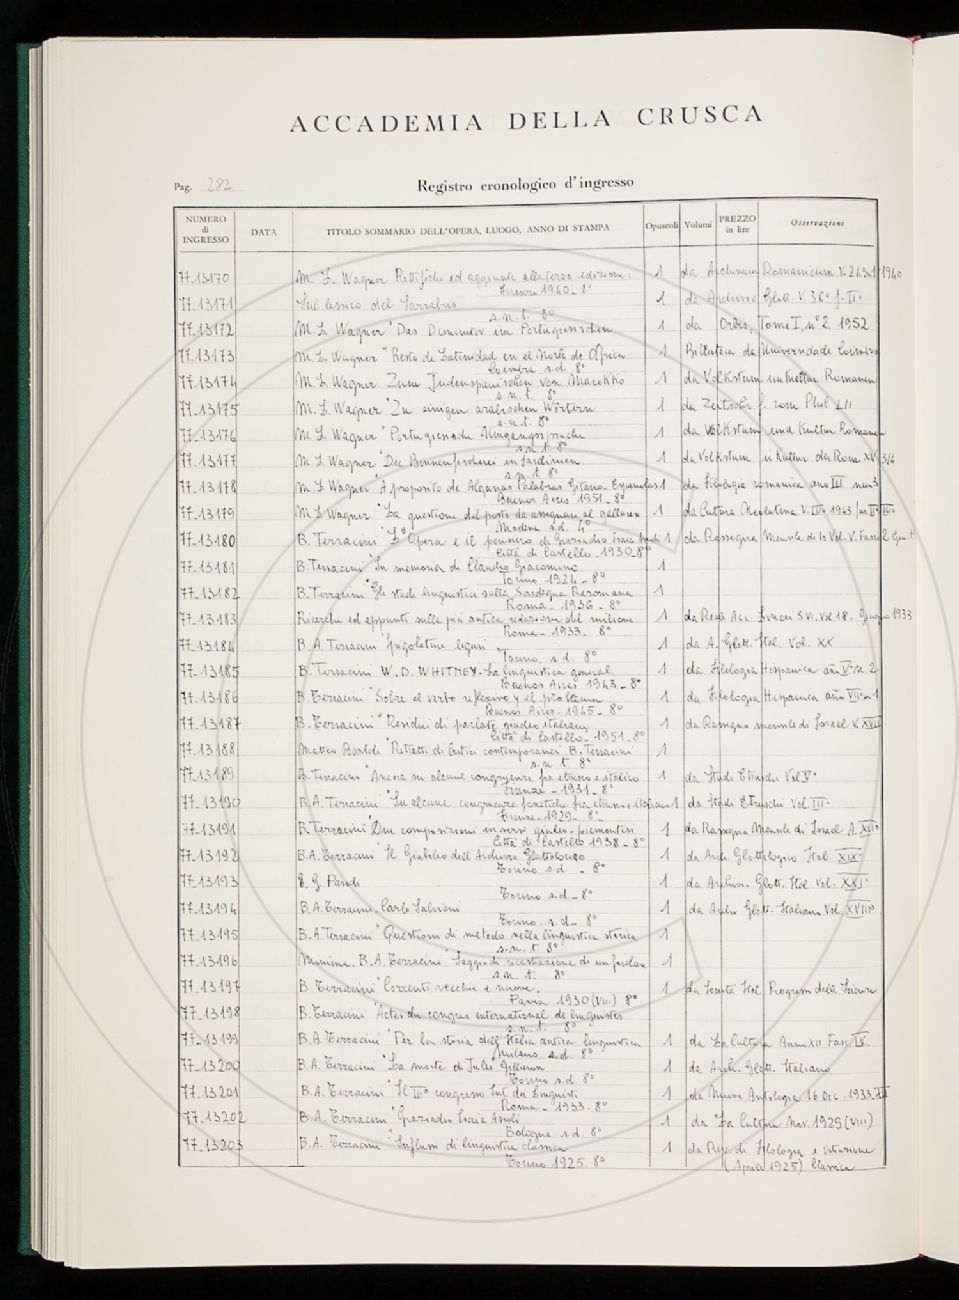 ACCADEMIA DELLA CRUSCA
Pag. 282 Registro cronologico d'ingresso
NUMERO di INGRESSO DATA TITOLO SOMMARIO DELL'OPERA, LUOGO, ANNO DI STAMPA Opuscoli Volumi PREZZO in lire Osservazioni
77-13170 M. L. Wagner Rettifiche ed aggiunte alla terza edizione 1 da Archivum Romanicum V. 24 1940
Firenze 1940 - 8°
77-13171 Sul lessico del Sarrabus 1 da Archivio Glott. V. 36° f. II°
s.n.t. 8°
77-13172 M L Wagner "Das Diminutiv im Portugiesischen 1 da Orbis, Tome I, n° 2 1952
77-13173 M. L. Wagner "Resto de Latinidad en el Norte de Africa 1 Biblioteca da Universidade Coimbra
Coimbra s.d. 8°
77-13174 M. L. Wagner Zum Judenspanischen von Marokko 1 da Volkstum und Kultur Romanen
s.n.t. 8°
77-13175 M. L. Wagner "Zu einigen arabischen Wörtern 1 da Zeitschr f. rom Phil LII
s.n.t. 8°
77-13176 M L Wagner "Portugiesische Umgangssprache 1 da Volkstum und Kultur Romanen
s.n.t. 8°
77-13177 M L Wagner "Die Binnenfischerei in Sardinien 1 da Volkstum u Kultur der Rom. XV 3/4
s.n.t. 8°
77-13178 M L Wagner "A proposito de Algunas Palabras Gitano-Españolas 1 da Filologia romanica ano III num 3
Buenos Aires 1951 - 8°
77-13179 M L Wagner "La questione del posto da assegnare al gallurese 1 da Cultura Neolatina V. III° 1943
Modena s.d. 4°
77-13180 B. Terracini "L'Opera e il pensiero di Graziadio Isaia Ascoli 1 da Rassegna Mensile di Is Vol. V. Fasc 2
Città di Castello - 1930 - 8°
77-13181 B. Terracini "In memoria di Claudio Giacomino 1
Torino 1924 - 8°
77-13182 B. Terracini "Gli studi linguistici sulla Sardegna Preromana 1
Roma - 1936 - 8°
77-13183 Ricerche ed appunti sulla più antica redazione del milione 1 da Reale Acc. Lincei S. VI. Vol 18 - Giugno 1933
Roma - 1933 - 8°
77-13184 B A. Terracini "Spigolature liguri 1 da A. Glott. Ital. Vol. XX
Torino s.d. 8°
77-13185 B. Terracini W. D. WHITNEY - La linguistica general 1 da Filologia Hispanica año V° n. 2
Buenos Aires 1943 - 8°
77-13186 B. Terracini "Sobre el verbo reflexivo y el problema 1 da Filologia Hispanica año VII° n 1
Buenos Aires - 1945 - 8°
77-13187 B. Terracini "Residui di parlate giudeo italiane 1 da Rassegna mensile di Israel V. XVII
Città di Castello - 1951 - 8°
77-13188 Matteo Bartoli "Ritratti di Critici contemporanei" B. Terracini 1
s.n.t 8°
77-13189 B. Terracini "Ancora su alcune congruenze fra etrusco e italico 1 da Studi Etruschi Vol V°
Firenze - 1931 - 8°
77-13190 B A. Terracini "Su alcune congruenze fonetiche fra etrusco e italico 1 da Studi Etruschi Vol. III°
Firenze - 1929 - 8°
77-13191 B. Terracini "Due composizioni in versi giudeo-piemontesi 1 da Rassegna Mensile di Israel A. XII°
Città di Castello 1938 - 8°
77-13192 B.A. Terracini "Il Giubileo dell'Archivio Glottologico 1 da Arch Glottologico Ital. XIX°
Torino s.d. - 8°
77-13193 E. G. Parodi 1 da Archiv. Glott. Ital Vol. XXI°
Torino s.d. - 8°
77-13194 B. A. Terracini Carlo Salvioni 1 da Archi Glott. Italiano Vol. XVIII°
Torino - s.d. - 8°
77-13195 B. A. Terracini "Questioni di metodo nella linguistica storica 1
s.n.t 8°
77-13196 Minima. B. A. Terracini "Saggio di ricostruzione di un focolare 1
s.n.t. 8°
77-13197 B. Terracini "Correnti vecchie e nuove. 1 da Società Ital Progresso delle Scienze
Pavia 1930 (VIII) 8°
77-13198 B. Terracini "Actes du congres international de linguistes
s.n.t. 8°
77-13199 B. A. Terracini "Per la storia dell'Italia antica linguistica 1 da La Cultura Anno XII Fasc IV
Milano s.d. 8°
77-13200 B. A. Terracini "La morte di Jules Gilliéron 1 da Arch. Glott. Italiano
Torino s.d 8°
77-13201 B. A. Terracini "Il III° congresso Int. dei Linguisti 1 da Nuova Antologia 16 Dic. 1933 XII
Roma - 1933 - 8°
77-13202 B. A. Terracini "Graziadio Isaia Ascoli 1 da La Cultura Nov. 1929 (VIII)
Bologna s.d. 8°
77-13203 B. A. Terracini "Influssi di linguistica classica 1 da Riv. di Filologia e istruzione
Torino 1925. 8° (Aprile 1925) Classica